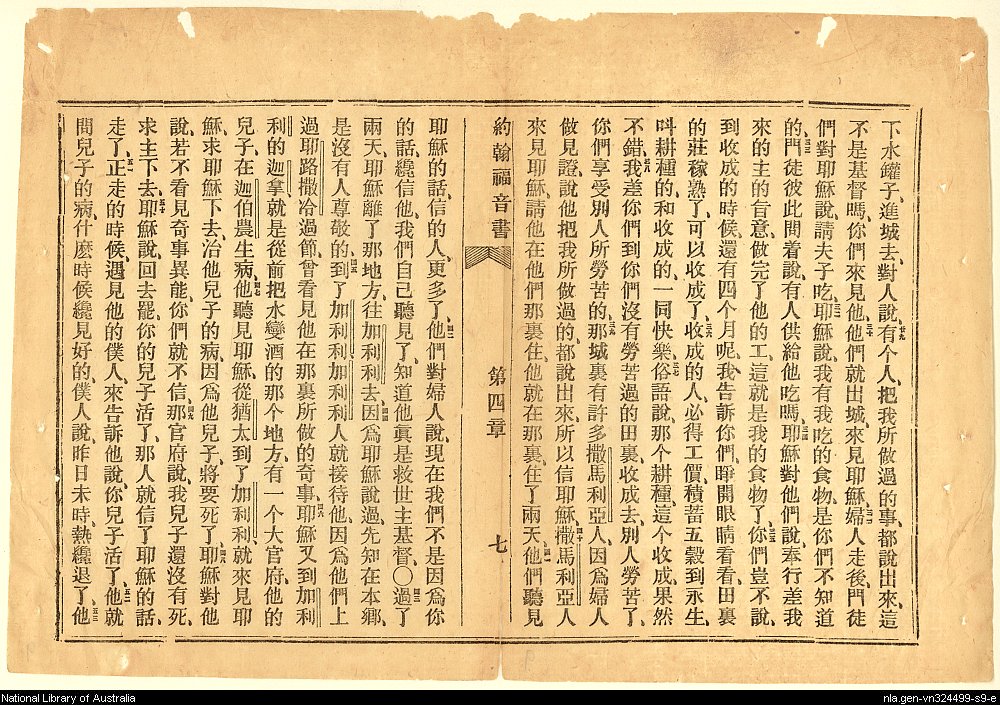 下水罐子、進城去、對人說、廿九有个人、把我所做過的事、都說出來、這
不是基督嗎、三十你們來見他、他們就出城來見耶穌、三一婦人走後、門徒
們對耶穌說、請夫子吃、三二耶穌說、我有我吃的食物、是你們不知道
的、三三門徒彼此問着說、有人供給他吃嗎、三四耶穌對他們說、奉行差我
來的主的旨意、做完了他的工、這就是我的食物了、三五你們豈不說、
到收成的時候、還有四个月呢、我告訴你們、睜開眼睛看看、田裏
的莊稼熟了、可以收成了、三六收成的人、必得工價、積蓄五穀到永生、
叫耕種的、和收成的、一同快樂、三七俗語說、那个耕種、這个收成、果然
不錯、三八我差你們到你們沒有勞苦過的田裏收成去、別人勞苦了、
你們享受別人所勞苦的、三九那城裏有許多撒馬利亞人、因爲婦人
做見證、說他把我所做過的、都說出來、所以信耶穌、四十撒馬利亞人
來見耶穌、請他在他們那裏住、他就在那裏住了兩天、四一他們聽見
約翰福音書 第四章 七
耶穌的話、信的人、更多了、四二他們對婦人說、現在我們不是因爲你
的話纔信他、我們自己聽見了、知道他眞是救世主基督、〇四三過了
兩天、耶穌離了那地方、往加利利去、四四因爲耶穌說過、先知在本鄉、
是沒有人尊敬的、四五到了加利利、加利利人就接待他、因爲他們上
過耶路撒冷過節、曾看見他在那裏所做的奇事、四六耶穌又到加利
利的迦拿、就是從前把水變酒的那个地方、有一个大官府、他的
兒子在迦伯農生病、四七他聽見耶穌從猶太到了加利利、就來見耶
穌、求耶穌下去、治他兒子的病、因爲他兒子、將要死了、四八耶穌對他
說、若不看見奇事異能、你們就不信、四九那官府說、我兒子還沒有死、
求主下去、五十耶穌說、回去罷、你的兒子活了、那人就信了耶穌的話、
走了、五一正走的時候、遇見他的僕人、來告訴他說、你兒子活了、五二他就
問兒子的病、什麼時候纔見好的、僕人說、昨日未時、熱纔退了、五三他
National Library of Australia
nla.gen-vn324499-s9-e